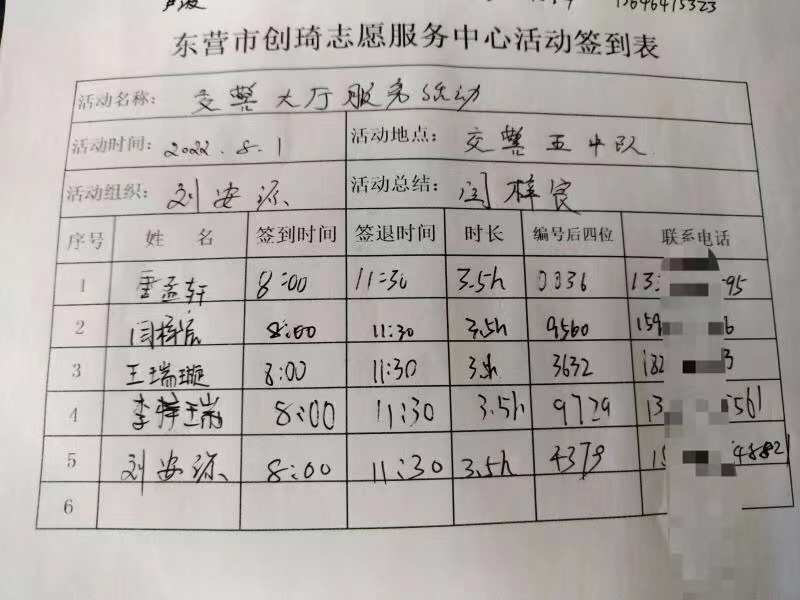 东营市创琦志愿服务中心活动签到表
活动名称： 交警大厅服务活动
活动时间： 2022.8.1 活动地点： 交警五中队
活动组织： 刘安 活动总结： 闫梓宸
序号 姓名 签到时间 签退时间 时长 编号后四位 联系电话
1 孟轩 8:00 11:30 3.5h 0036 13 95
2 闫梓宸 8:00 11:30 3.5h 9560 159 6
3 王瑞璇 8:00 11:30 3.5h 3632 182 3
4 李梓瑞 8:00 11:30 3.5h 9729 13 561
5 刘安 8:00 11:30 3.5h 4379 15 4882
6